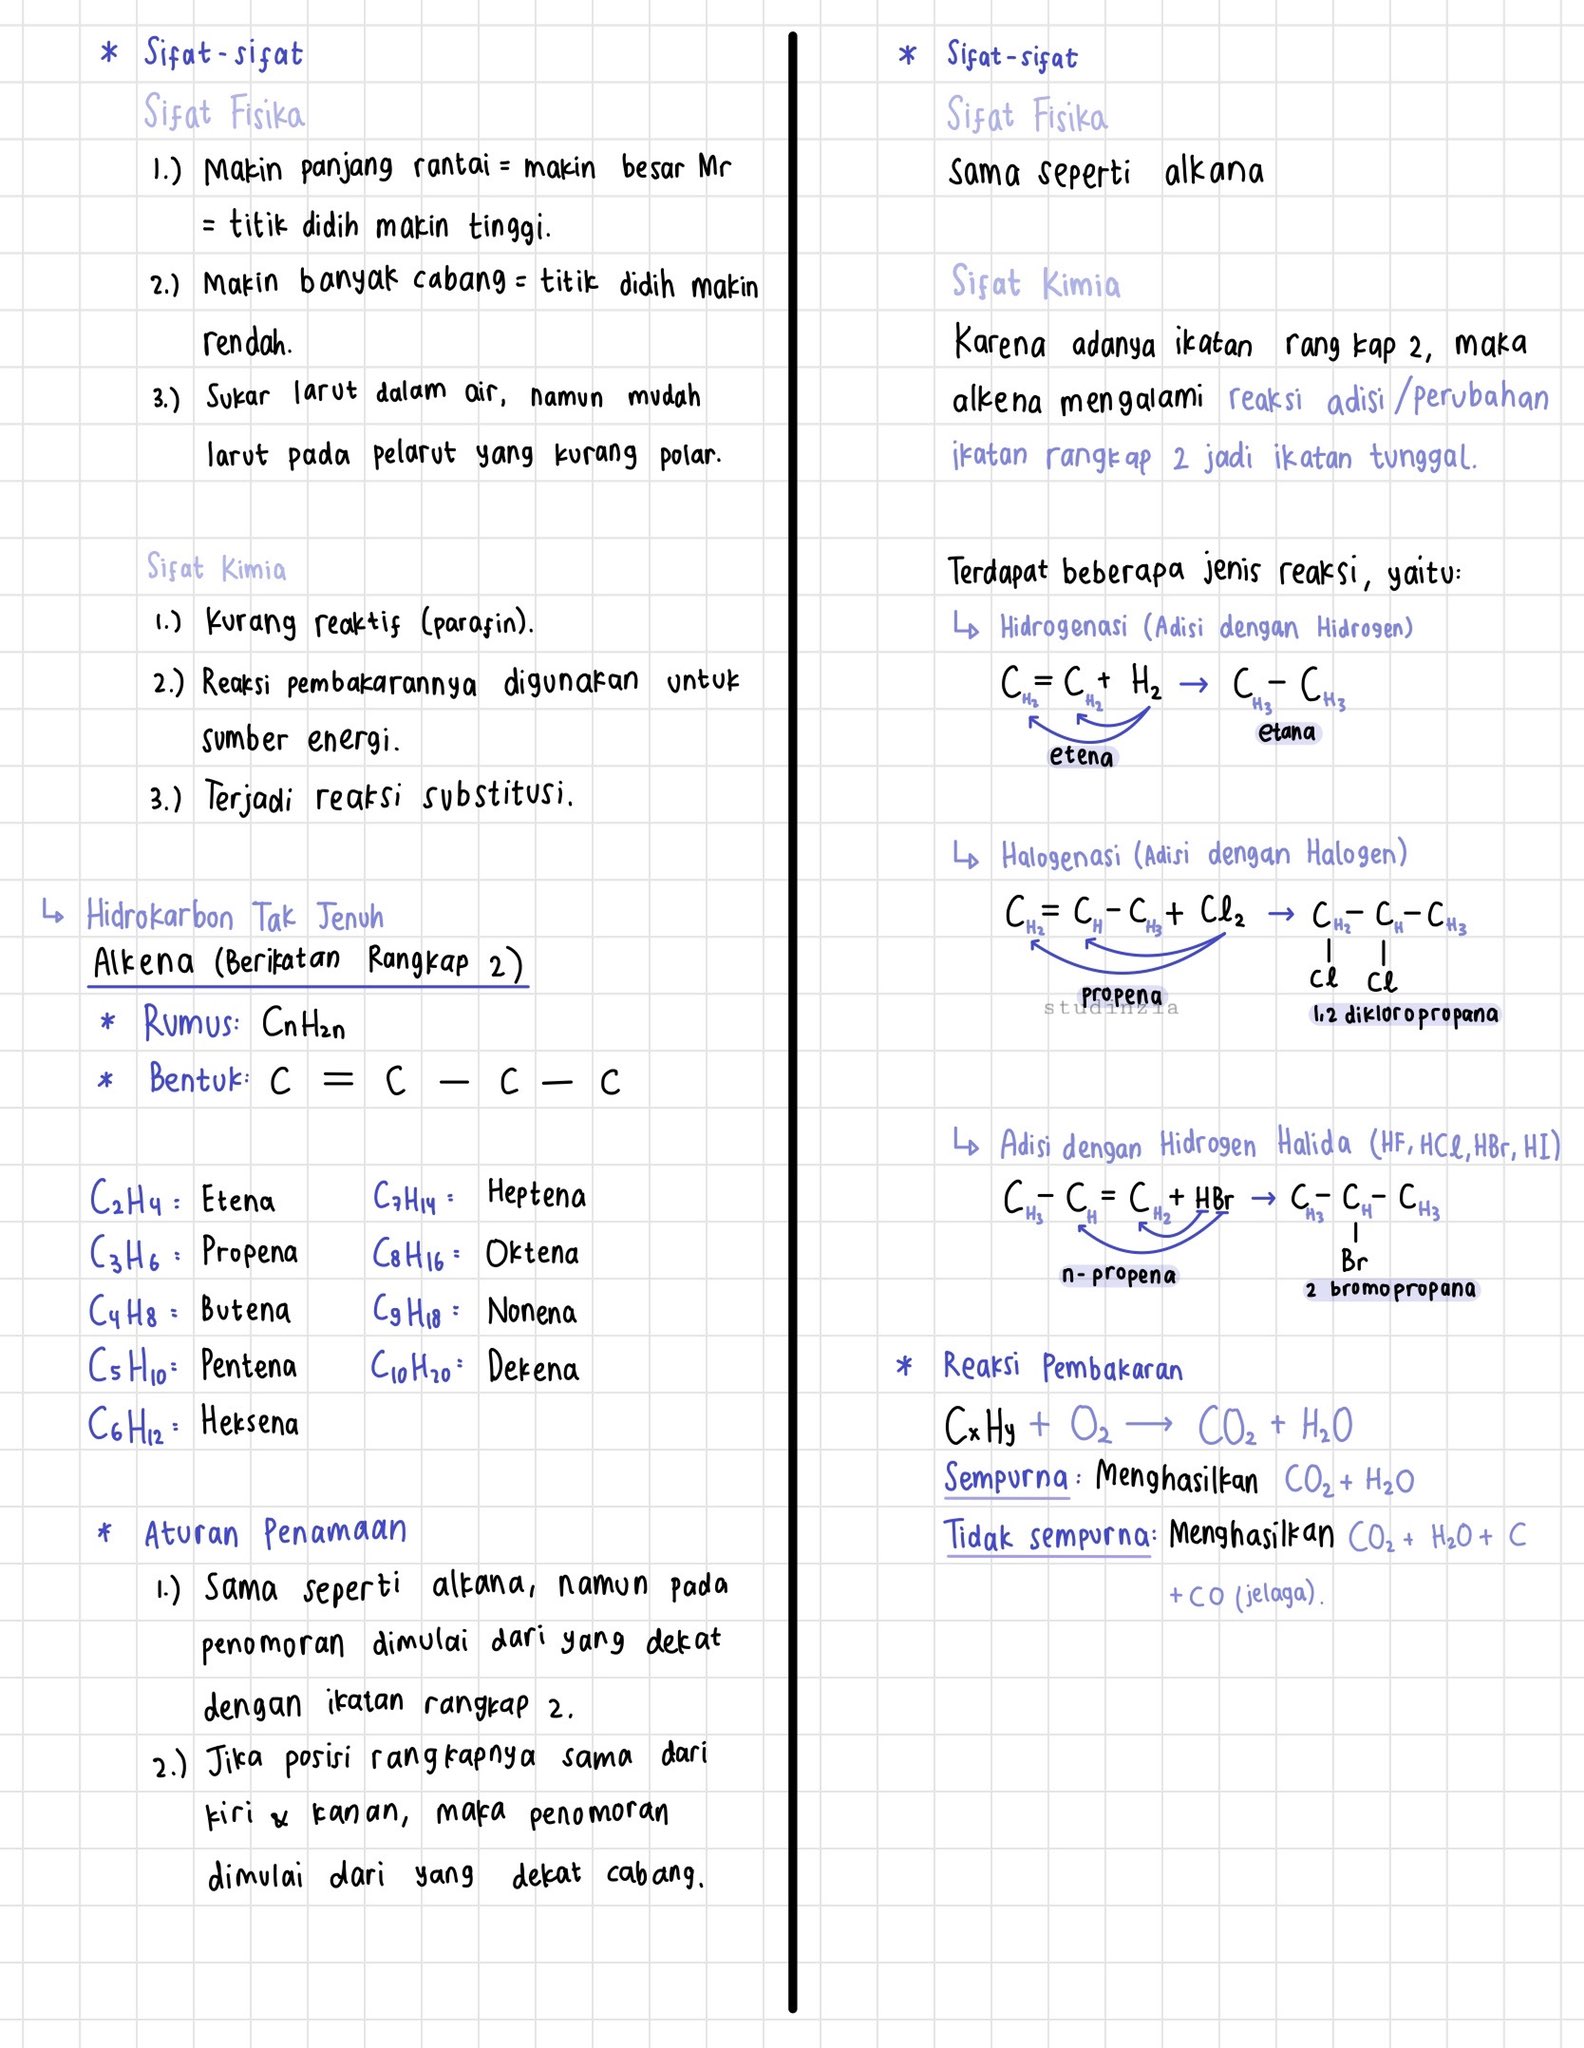 * Sifat-sifat
Sifat Fisika
1.) Makin panjang rantai = makin besar Mr
= titik didih makin tinggi.
2.) Makin banyak cabang = titik didih makin
rendah.
3.) Sukar larut dalam air, namun mudah
larut pada pelarut yang kurang polar.
Sifat Kimia
1.) Kurang reaktif (parafin).
2.) Reaksi pembakarannya digunakan untuk
sumber energi.
3.) Terjadi reaksi substitusi.
↳ Hidrokarbon Tak Jenuh
Alkena (Berikatan Rangkap 2)
* Rumus: CnH2n
* Bentuk: C = C – C – C
C2H4 : Etena
C3H6 : Propena
C4H8 : Butena
C5H10 : Pentena
C6H12 : Heksena
C7H14 : Heptena
C8H16 : Oktena
C9H18 : Nonena
C10H20 : Dekena
* Aturan Penamaan
1.) Sama seperti alkana, namun pada
penomoran dimulai dari yang dekat
dengan ikatan rangkap 2.
2.) Jika posisi rangkapnya sama dari
kiri & kanan, maka penomoran
dimulai dari yang dekat cabang.
* Sifat-sifat
Sifat Fisika
Sama seperti alkana
Sifat Kimia
Karena adanya ikatan rangkap 2, maka
alkena mengalami reaksi adisi/perubahan
ikatan rangkap 2 jadi ikatan tunggal.
Terdapat beberapa jenis reaksi, yaitu:
↳ Hidrogenasi (Adisi dengan Hidrogen)
CH2 = CH2 + H2 → CH3 – CH3
etana
etena
↳ Halogenasi (Adisi dengan Halogen)
CH2 = CH – CH3 + Cl2 → CH2 – CH – CH3
Cl Cl
propena
studinzia
1,2 dikloropropana
↳ Adisi dengan Hidrogen Halida (HF, HCl, HBr, HI)
CH3 – CH = CH2 + HBr → CH3 – CH – CH3
Br
n-propena
2 bromopropana
* Reaksi Pembakaran
CxHy + O2 → CO2 + H2O
Sempurna : Menghasilkan CO2 + H2O
Tidak sempurna : Menghasilkan CO2 + H2O + C
+ CO (jelaga).